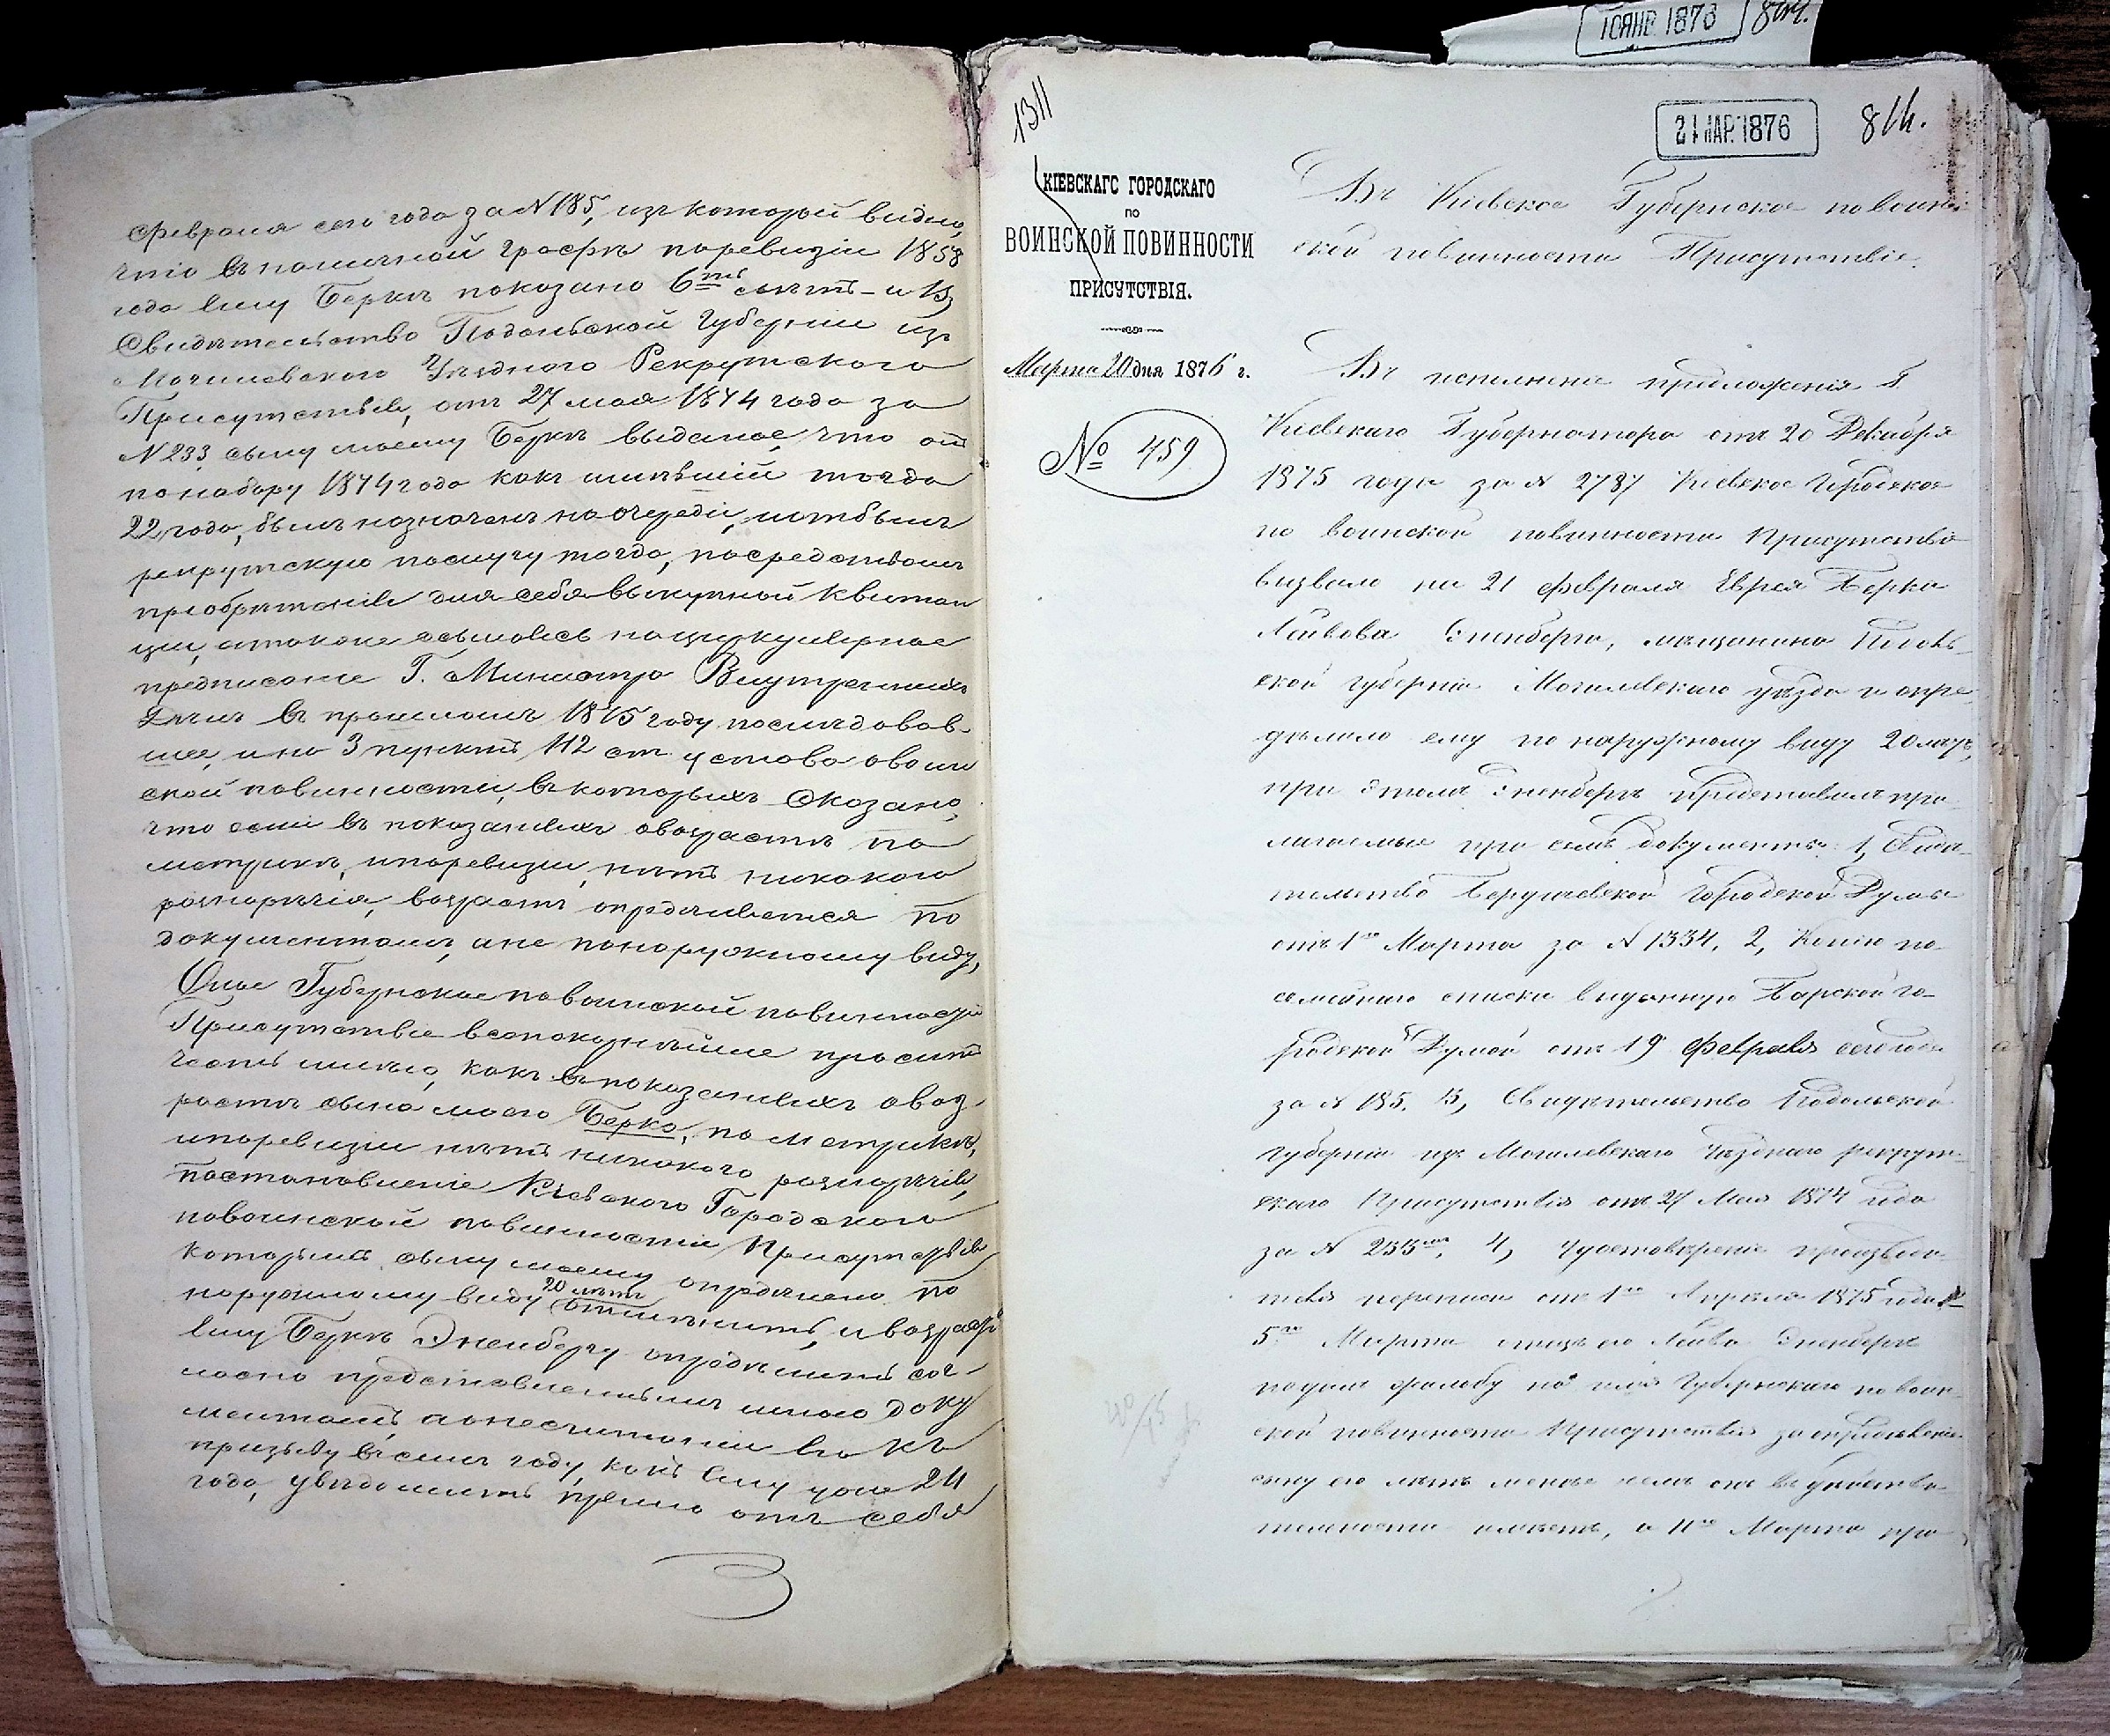 февраля сего года за N 185, изъ которой видно,
что въ поличной графѣ поревизіи 1858
года ему Беркѣ показано 6ть лѣтъ - и 3,
Свидѣтельство Подольской Губерніи изъ
Могилевского Уѣздного Рекрутского
Присутствія, отъ 27 мая 1874 года за
N 233, сыну моему Беркѣ выданое, что онъ
по набору 1874 года какъ имѣвшій тогда
22 года, былъ назначенъ на очереди, и отбылъ
рекрутскую послугу тогда, посредствомъ
пріобрѣтенія для себя выкупной квитан
ціи, а также ссылаясь на циркулярное
предписаніе Г. Министра Внутреннихъ
Дѣлъ въ прошломъ 1875 году послѣдовав-
шее, и на 3 пунктъ 112 ст устава о воин
ской повинности, въ которыхъ сказано,
что если въ показаніяхъ о возрастѣ по
метрикѣ, и поревизіи, нѣтъ никакого
разнорѣчія, возрастъ опредѣляется по
документамъ, а не по наружному виду,
Оное Губернское по воинской повинности
Присутствіе всепокорнѣйше просить
честь имѣю, какъ въ показаніяхъ о воз
растѣ сына моего Берка, по метрикѣ,
и поревизіи нѣтъ никакого разнорѣчія,
постановленіе Кіевского Городского
по воинской повинности Присутствія
которымъ сыну моему опредѣлено по
наружному виду 20 лѣтъ отмѣнить, и возрастъ
ему Беркѣ Эненбергу опредѣлить сог-
ласно представленнымъ мною доку
ментамъ, а о несчитаніи его къ
призыву въ семъ году, какъ ему уже 24
года, увѣдомить прямо отъ себя
10 ЯНВ 1876
1311
21 МАР. 1876
814.
КІЕВСКАГО ГОРОДСКАГО
ПО
ВОИНСКОЙ ПОВИННОСТИ
ПРИСУТСТВІЯ.
Марта 20 дня 1876 г.
№ 459
Въ Кіевское Губернское по воин
ской повинности Присутствіе.
Въ исполненіе предложенія Г.
Кіевскаго Губернатора отъ 20 Декабря
1875 года за N 2787 Кіевское Городское
по воинской повинности Присутствіе
вызвало на 21 февраля Еврея Берка
Лейбова Эненберга, мѣщанина Подоль
ской губерніи Могилевскаго уѣзда и опре
дѣлило ему по наружному виду 20 лѣтъ,
при этомъ Эненбергъ представилъ при
лагаемые при семъ документы: 1, Свидѣ
тельство Бердичевской Городской Думы
отъ 1го Марта за N 1334. 2, Копію по
семейнаго списка выданную Барской го-
родской Думой отъ 19 Февраля сего года
за N 185. 3, Свидѣтельство Подольской
губерніи изъ Могилевскаго Уѣзднаго рекрут
скаго Присутствія отъ 27 Мая 1874 года
за N 233мъ. 4, Удостовѣреніе производи
теля переписи отъ 1го Апрѣля 1875 года
5го Марта отецъ его Лейба Эненбергъ
подалъ жалобу на имя Губернскаго по воин
ской повинности Присутствія за опредѣленіе
сыну его лѣтъ менѣе чемъ онъ въ дѣйстви
тельности имѣетъ, а 11го Марта про